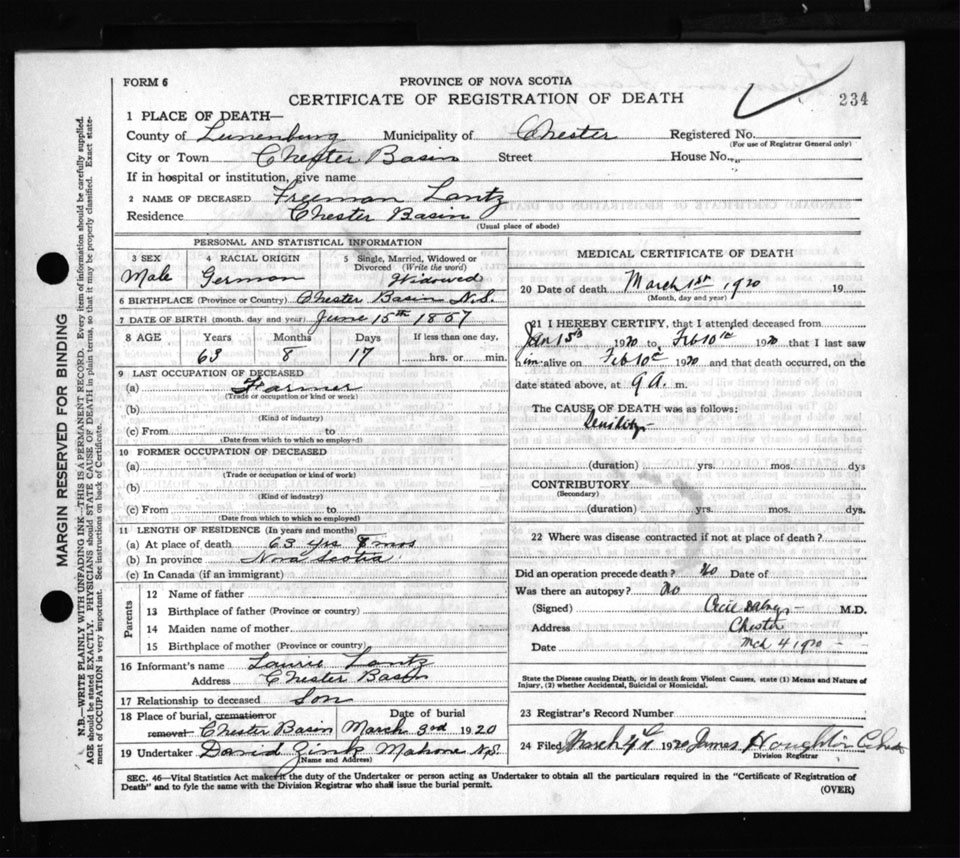 FORM 6
PROVINCE OF NOVA SCOTIA
CERTIFICATE OF REGISTRATION OF DEATH
234
1 PLACE OF DEATH—
County of Lunenburg Municipality of Chester Registered No.
(For use of Registrar General only)
City or Town Chester Basin Street House No.
If in hospital or institution, give name
2 NAME OF DECEASED Freeman Lantz
Residence Chester Basin
(Usual place of abode)
PERSONAL AND STATISTICAL INFORMATION
3 SEX 4 RACIAL ORIGIN 5 Single, Married, Widowed or
Divorced (Write the word)
Male German Widowed
6 BIRTHPLACE (Province or Country) Chester Basin N.S.
7 DATE OF BIRTH (month, day and year) June 15th 1857
8 AGE Years Months Days If less than one day,
63 8 17 hrs. or min.
9 LAST OCCUPATION OF DECEASED
(a) Farmer
(Trade or occupation or kind or work)
(b)
(Kind of industry)
(c) From to
(Date from which to which so employed)
10 FORMER OCCUPATION OF DECEASED
(a)
(Trade or occupation or kind of work)
(b)
(Kind of industry)
(c) From to
(Date from which to which so employed)
11 LENGTH OF RESIDENCE (In years and months)
(a) At place of death 63 yrs 8 mos
(b) In province Nova Scotia
(c) In Canada (if an immigrant)
Parents
12 Name of father
13 Birthplace of father (Province or country)
14 Maiden name of mother
15 Birthplace of mother (Province or country)
16 Informant's name Laurie Lantz
Address Chester Basin
17 Relationship to deceased Son
18 Place of burial, cremation or Date of burial
removal Chester Basin March 3rd 1920
19 Undertaker David Zink Mahone N.S.
(Name and Address)
MEDICAL CERTIFICATE OF DEATH
20 Date of death March 1st 1920 19
(Month, day and year)
21 I HEREBY CERTIFY, that I attended deceased from
Jan 15th 1920 to Feb 10th 1920 that I last saw
him alive on Feb 10th 1920 and that death occurred, on the
date stated above, at 9 A. m.
The CAUSE OF DEATH was as follows:
Senility
(duration) yrs. mos. dys
CONTRIBUTORY
(Secondary)
(duration) yrs. mos. dys.
22 Where was disease contracted if not at place of death?
Did an operation precede death? No Date of
Was there an autopsy? No
(Signed) Cecil M.D.
Address Chester
Date Mch 4 1920
State the Disease causing Death, or in death from Violent Causes, state (1) Means and Nature of
Injury, (2) whether Accidental, Suicidal or Homicidal.
23 Registrar's Record Number
24 Filed March 4th 1920 James Houghton Chester
Division Registrar
SEC. 46—Vital Statistics Act makes it the duty of the Undertaker or person acting as Undertaker to obtain all the particulars required in the "Certificate of Registration of
Death" and to fyle the same with the Division Registrar who shall issue the burial permit.
(OVER)
MARGIN RESERVED FOR BINDING
N.B.—WRITE PLAINLY WITH UNFADING INK—THIS IS A PERMANENT RECORD. Every item of information should be carefully supplied.
AGE should be stated EXACTLY. PHYSICIANS should STATE CAUSE OF DEATH in plain terms, so that it may be properly classified. Exact state-
ment of OCCUPATION is very important. See instructions on back of Certificate.